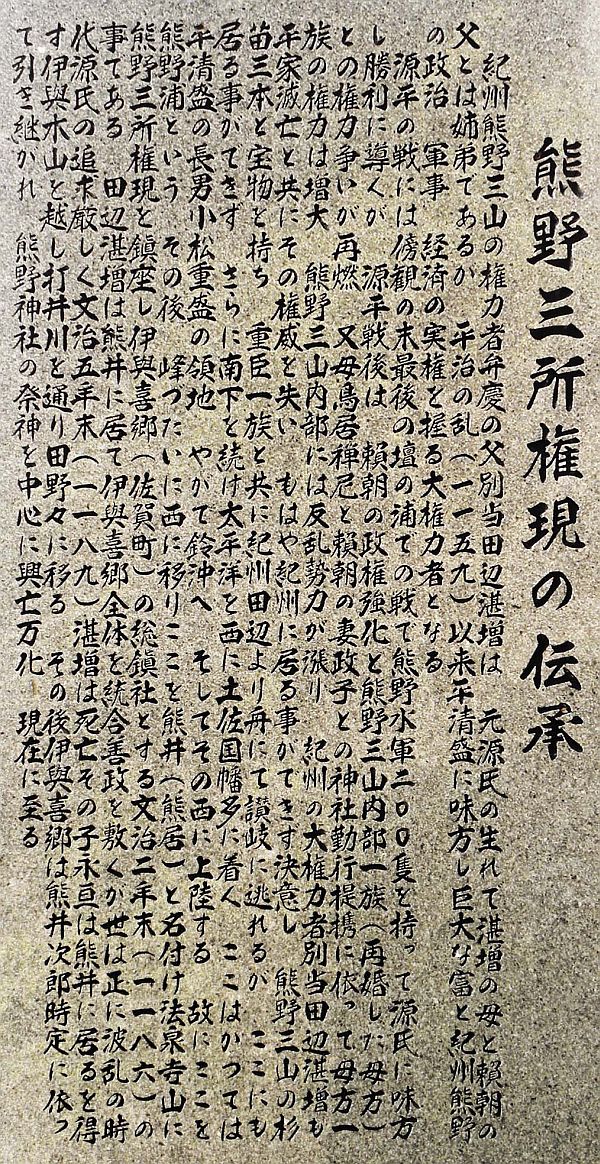 熊野三所権現の伝承
紀州熊野三山の権力者弁慶の父別当田辺湛増は　元源氏の生れて湛増の母と頼朝の
父とは姉弟であるが　平治の乱（一一五九）以来平清盛に味方し巨大な富と紀州熊野
の政治　軍事　経済の実権を握る大権力者となる
源平の戦には傍観の末最後の壇の浦での戦で熊野水軍二〇〇隻を持って源氏に味方
し勝利に導くが　源平戦後は　頼朝の政権強化と熊野三山内部一族（再婚した母方）
との権力争いが再燃　又母鳥居禅尼と頼朝の妻政子との神社勤行提携に依って母方一
族の権力は増大　熊野三山内部には反乱勢力が漲り　紀州の大権力者別当田辺湛増も
平家滅亡と共にその権威を失い　もはや紀州に居る事ができず決意し　熊野三山の杉
苗三本と宝物を持ち　重臣一族と共に紀州田辺より舟にて讃岐に逃れるが　ここにも
居る事ができず　さらに南下を続け太平洋を西に土佐国幡多に着く　ここはかつては
平清盛の長男小松重盛の領地　やがて鈴沖へ　そしてその西に上陸する　故にここを
熊野浦という　その後　峰つたいに西に移りここを熊井（熊居）と名付け法泉寺山に
熊野三所権現を鎮座し伊與喜郷（佐賀町）の総鎮社とする文治二年末（一一八六）の
事である　田辺湛増は熊井に居て伊與喜郷全体を統合善政を敷くが世は正に波乱の時
代源氏の追求厳しく文治五年末（一一八九）湛増は死亡その子永亘は熊井に居るを得
す伊與木山を越し打井川を通り田野々に移る　その後伊與喜郷は熊井次郎時定に依っ
て引き継がれ　熊野神社の祭神を中心に興亡万化　現在に至る